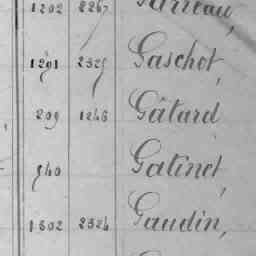 1202 2267 Garreau,
1291 2325 Gaschot,
209 1246 Gâtard
540 Gatinet,
1302 2324 Gaudin,